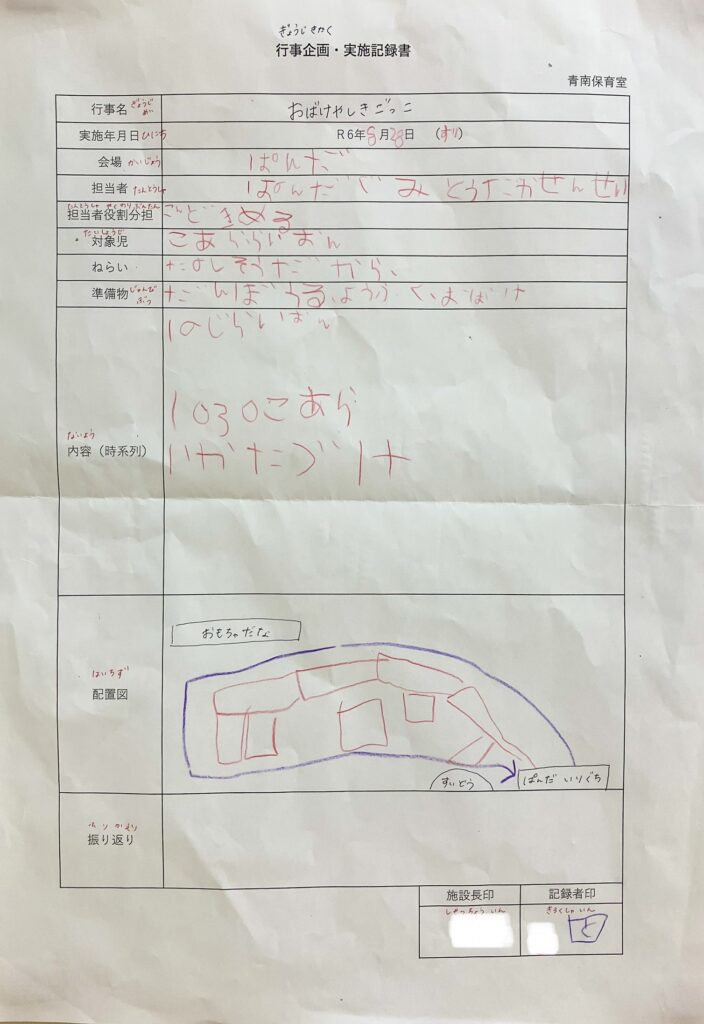 ぎょうじきかく
行事企画・実施記録書
青南保育室
行事名 ぎょうじめい おばけやしきごっこ
実施年月日 ひにち R6年8月28日 (すり)
会場 かいじょう ぱんだ
担当者 たんとうしゃ ぱんだぐみ とうたかせんせい
たんとうしゃ やくわりぶんたん
担当者役割分担 こんどきめる
たいしょうじ
対象児 こあららいおん
ねらい たのしそうだから、
準備物 じゅんびぶつ だんぼうる、ようふく、おばけ
10じらいおん
1030こあら
ないよう
内容（時系列） 11かたづけ
おもちゃだな
はいちず
配置図
すいどう
ぱんだ いりぐち
ふりかえり
振り返り
施設長印 記録者印
しせつちょういん きろくしゃいん
と